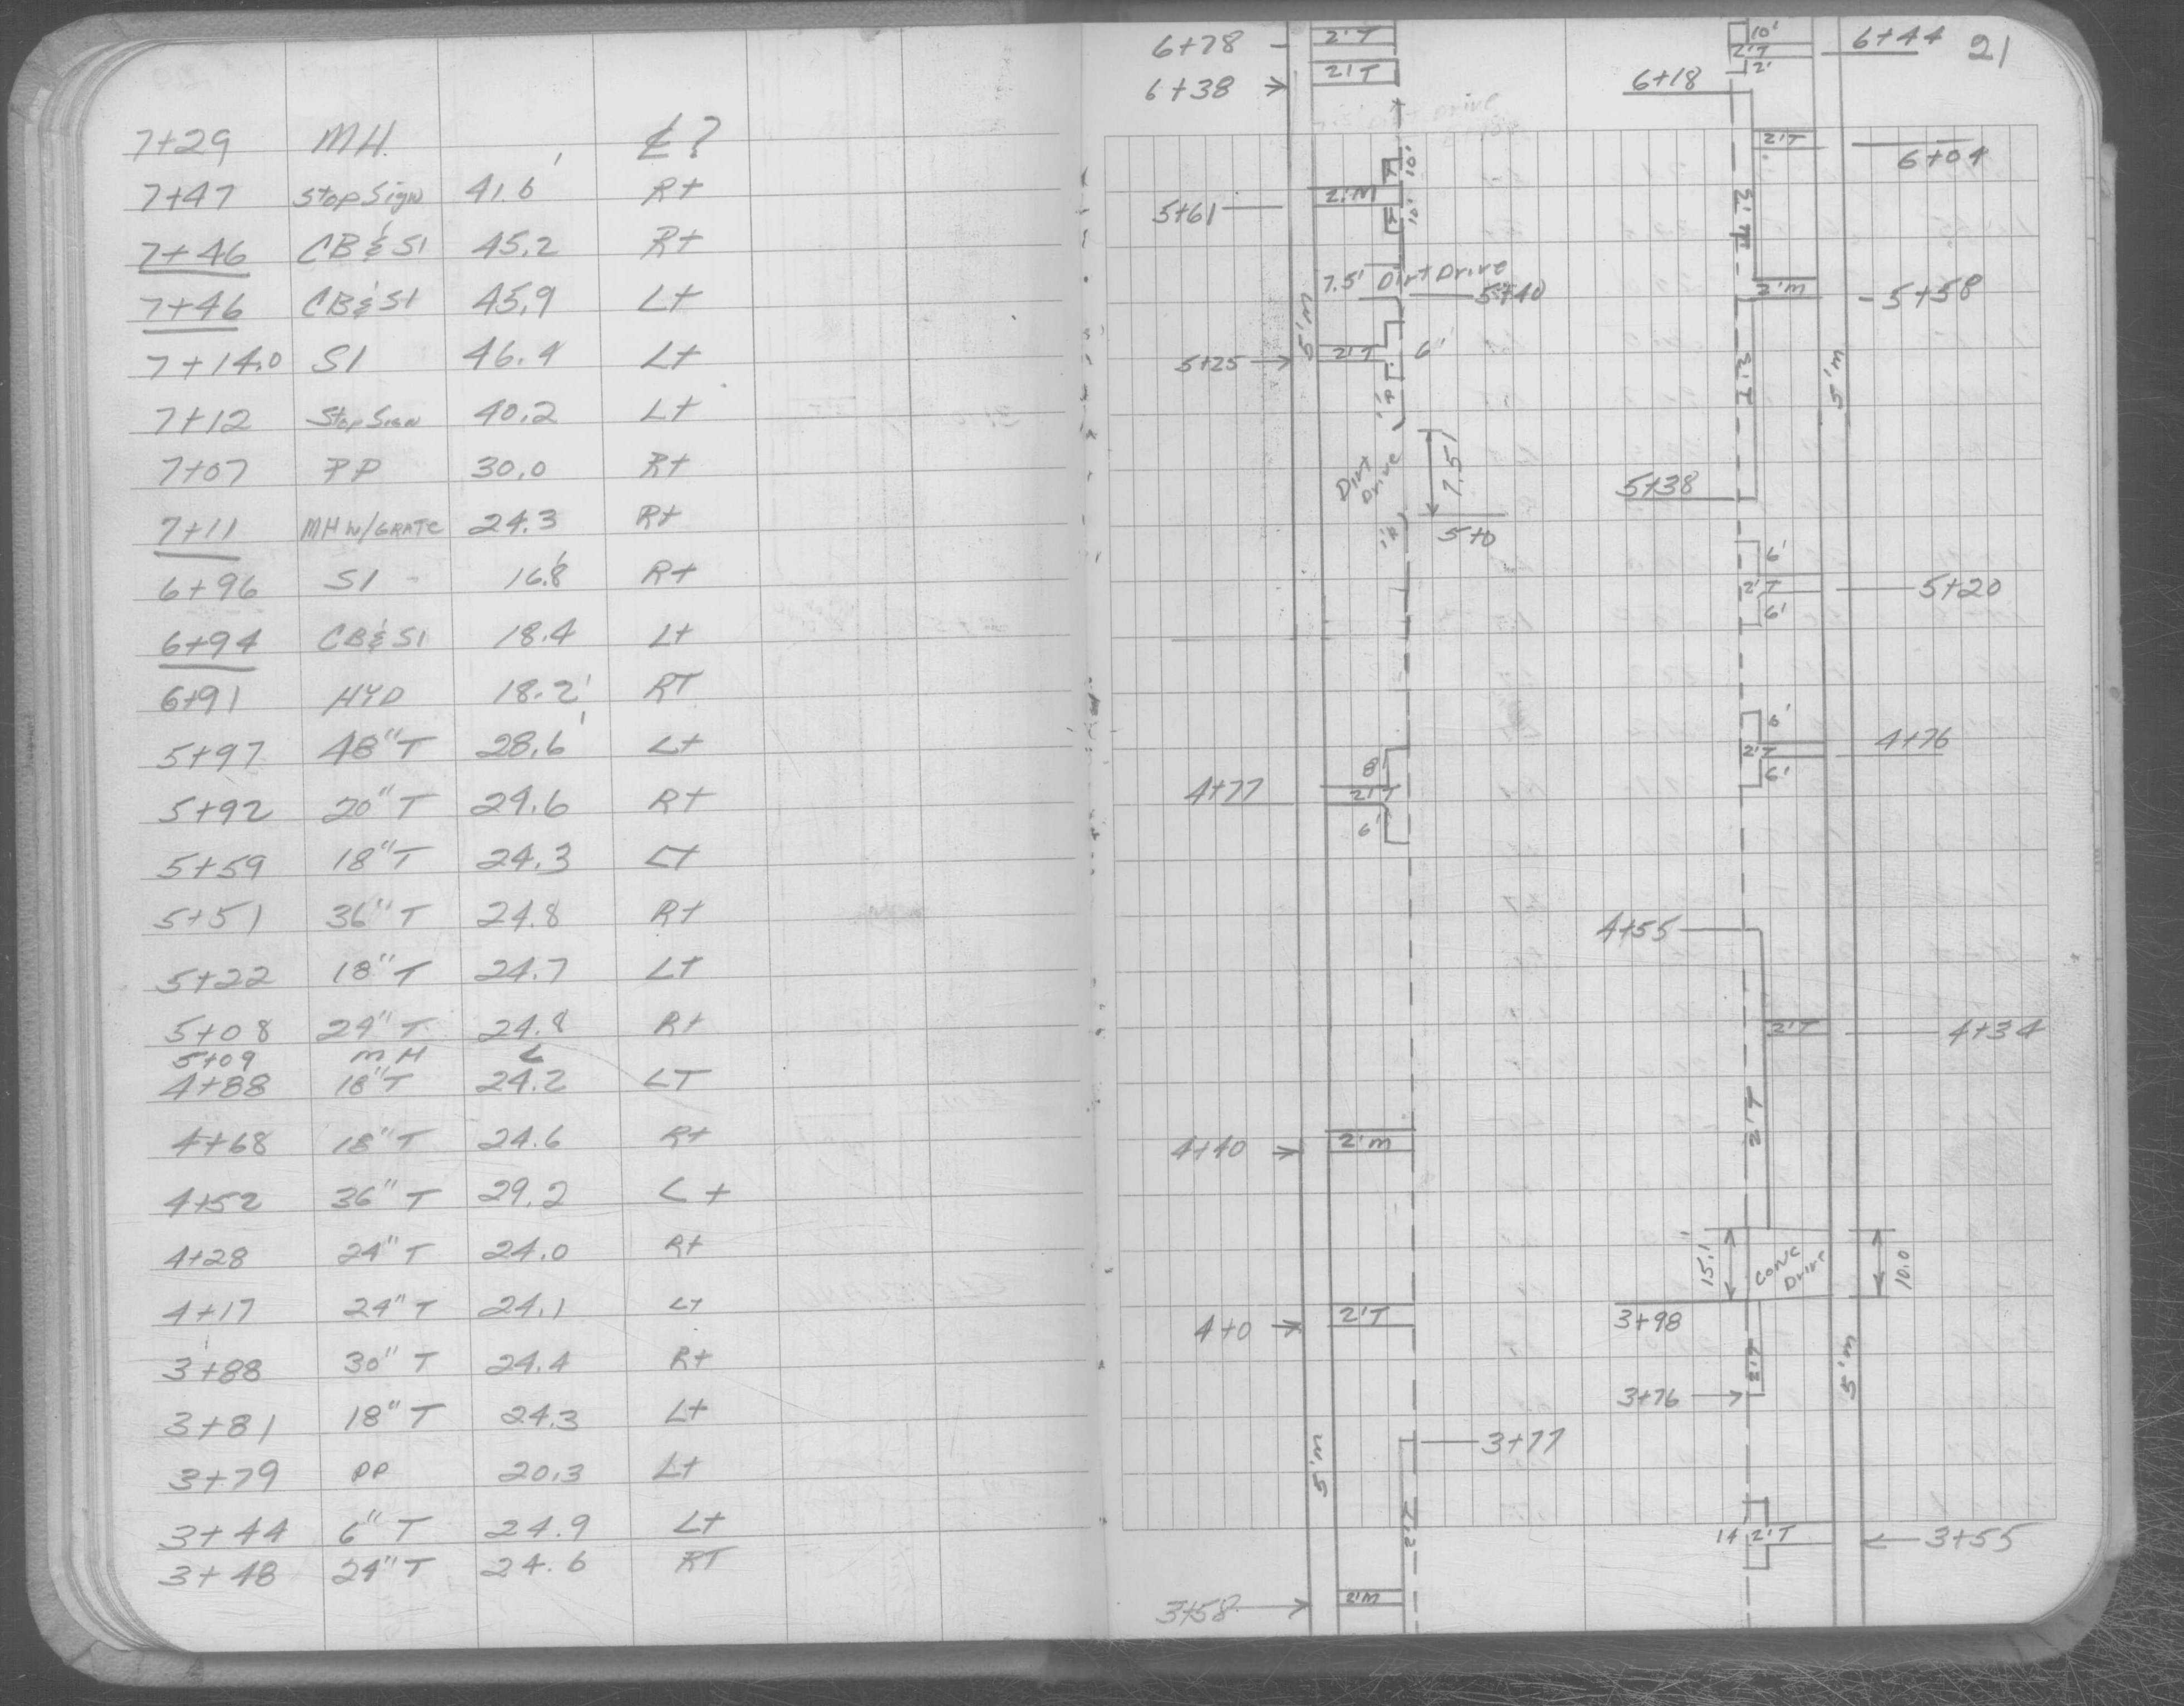 7+29 MH. ℄ ?
7+47 Stop Sign 41.6' Rt
7+46 CB & SI 45.2 Rt
7+46 CB & SI 45.9 Lt
7+14.0 SI 46.4 Lt
7+12 Stop Sign 40.2 Lt
7+07 PP 30.0 Rt
7+11 MH W/GRATE 24.3 Rt
6+96 SI 16.8' Rt
6+94 CB & SI 18.4 Lt
6+91 HYD 18.2' RT
5+97 48" T 28.6' Lt
5+92 20" T 29.6 Rt
5+59 18" T 24.3 Lt
5+51 36" T 24.8 Rt
5+22 18" T 24.7 Lt
5+08 24" T 24.8 Rt
5+09 MH C
4+88 18" T 24.2 LT
4+68 18" T 24.6 Rt
4+52 36" T 29.2 Lt
4+28 24" T 24.0 Rt
4+17 24" T 24.1 Lt
3+88 30" T 24.4 Rt
3+81 18" T 24.3 Lt
3+79 PP 20.3 Lt
3+44 6" T 24.9 Lt
3+48 24" T 24.6 RT
21
6+78 2'T 10' 2'T 6+44
6+38 2'T 2'
6+18
2'T 6+04
T 10'
5+61 2'M
T 10'
2'T
7.5' Dirt Drive
5+40
2'M 5+58
5'M
5+25 2'T 6'
2'T
5'M
Dirt Drive 7.5'
5+38
5+0
6'
2'T 5+20
6'
6'
2'T 4+76
6'
8'
4+77 2'T
6'
4+55
2'T 4+34
2'T
4+40 2'M
15.1' Conc Drive 10.0
4+0 2'T
3+98
2'T
5'M
3+76
3+77
5'M
2'T
14 2'T 3+55
3+58 2'M